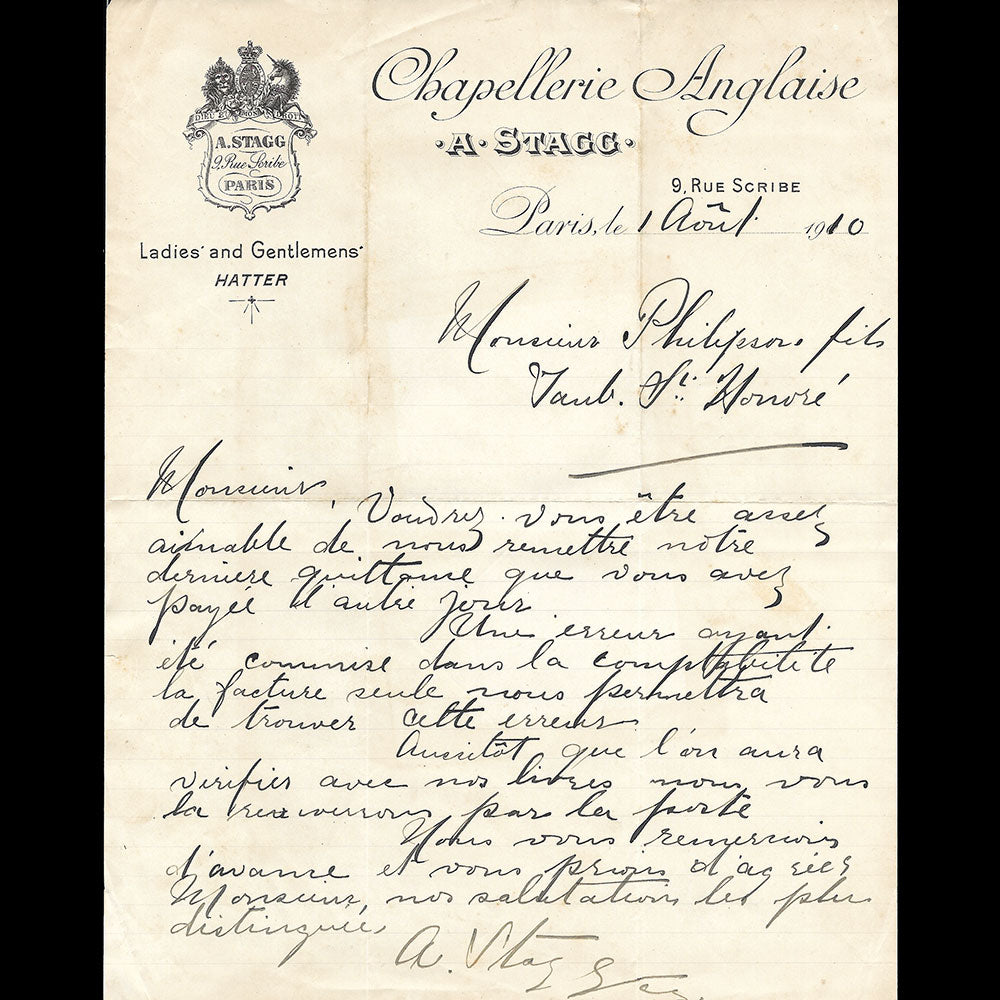 DIEU ET MON DROIT
A. STAGG
9, Rue Scribe
PARIS
Ladies' and Gentlemens'
HATTER
Chapellerie Anglaise
·A· STAGG·
9, RUE SCRIBE
Paris, le 1 Août 1910
Monsieur Philipson fils
Faub. St. Honoré
Monsieur,
Voudrez-vous être assez
aimable de nous remettre notre
derniere quittance que vous avez
payée l'autre jour
Une erreur ayant
été commise dans la comptabilite
la facture seule nous permettra
de trouver cette erreur
Aussitôt que l'on aura
verifier avec nos livres nous vous
la renverrons par la poste
Nous vous remercions
d'avance et vous prions d'agréer
Monsieur, nos salutations les plus
distinguées
A. Stagg